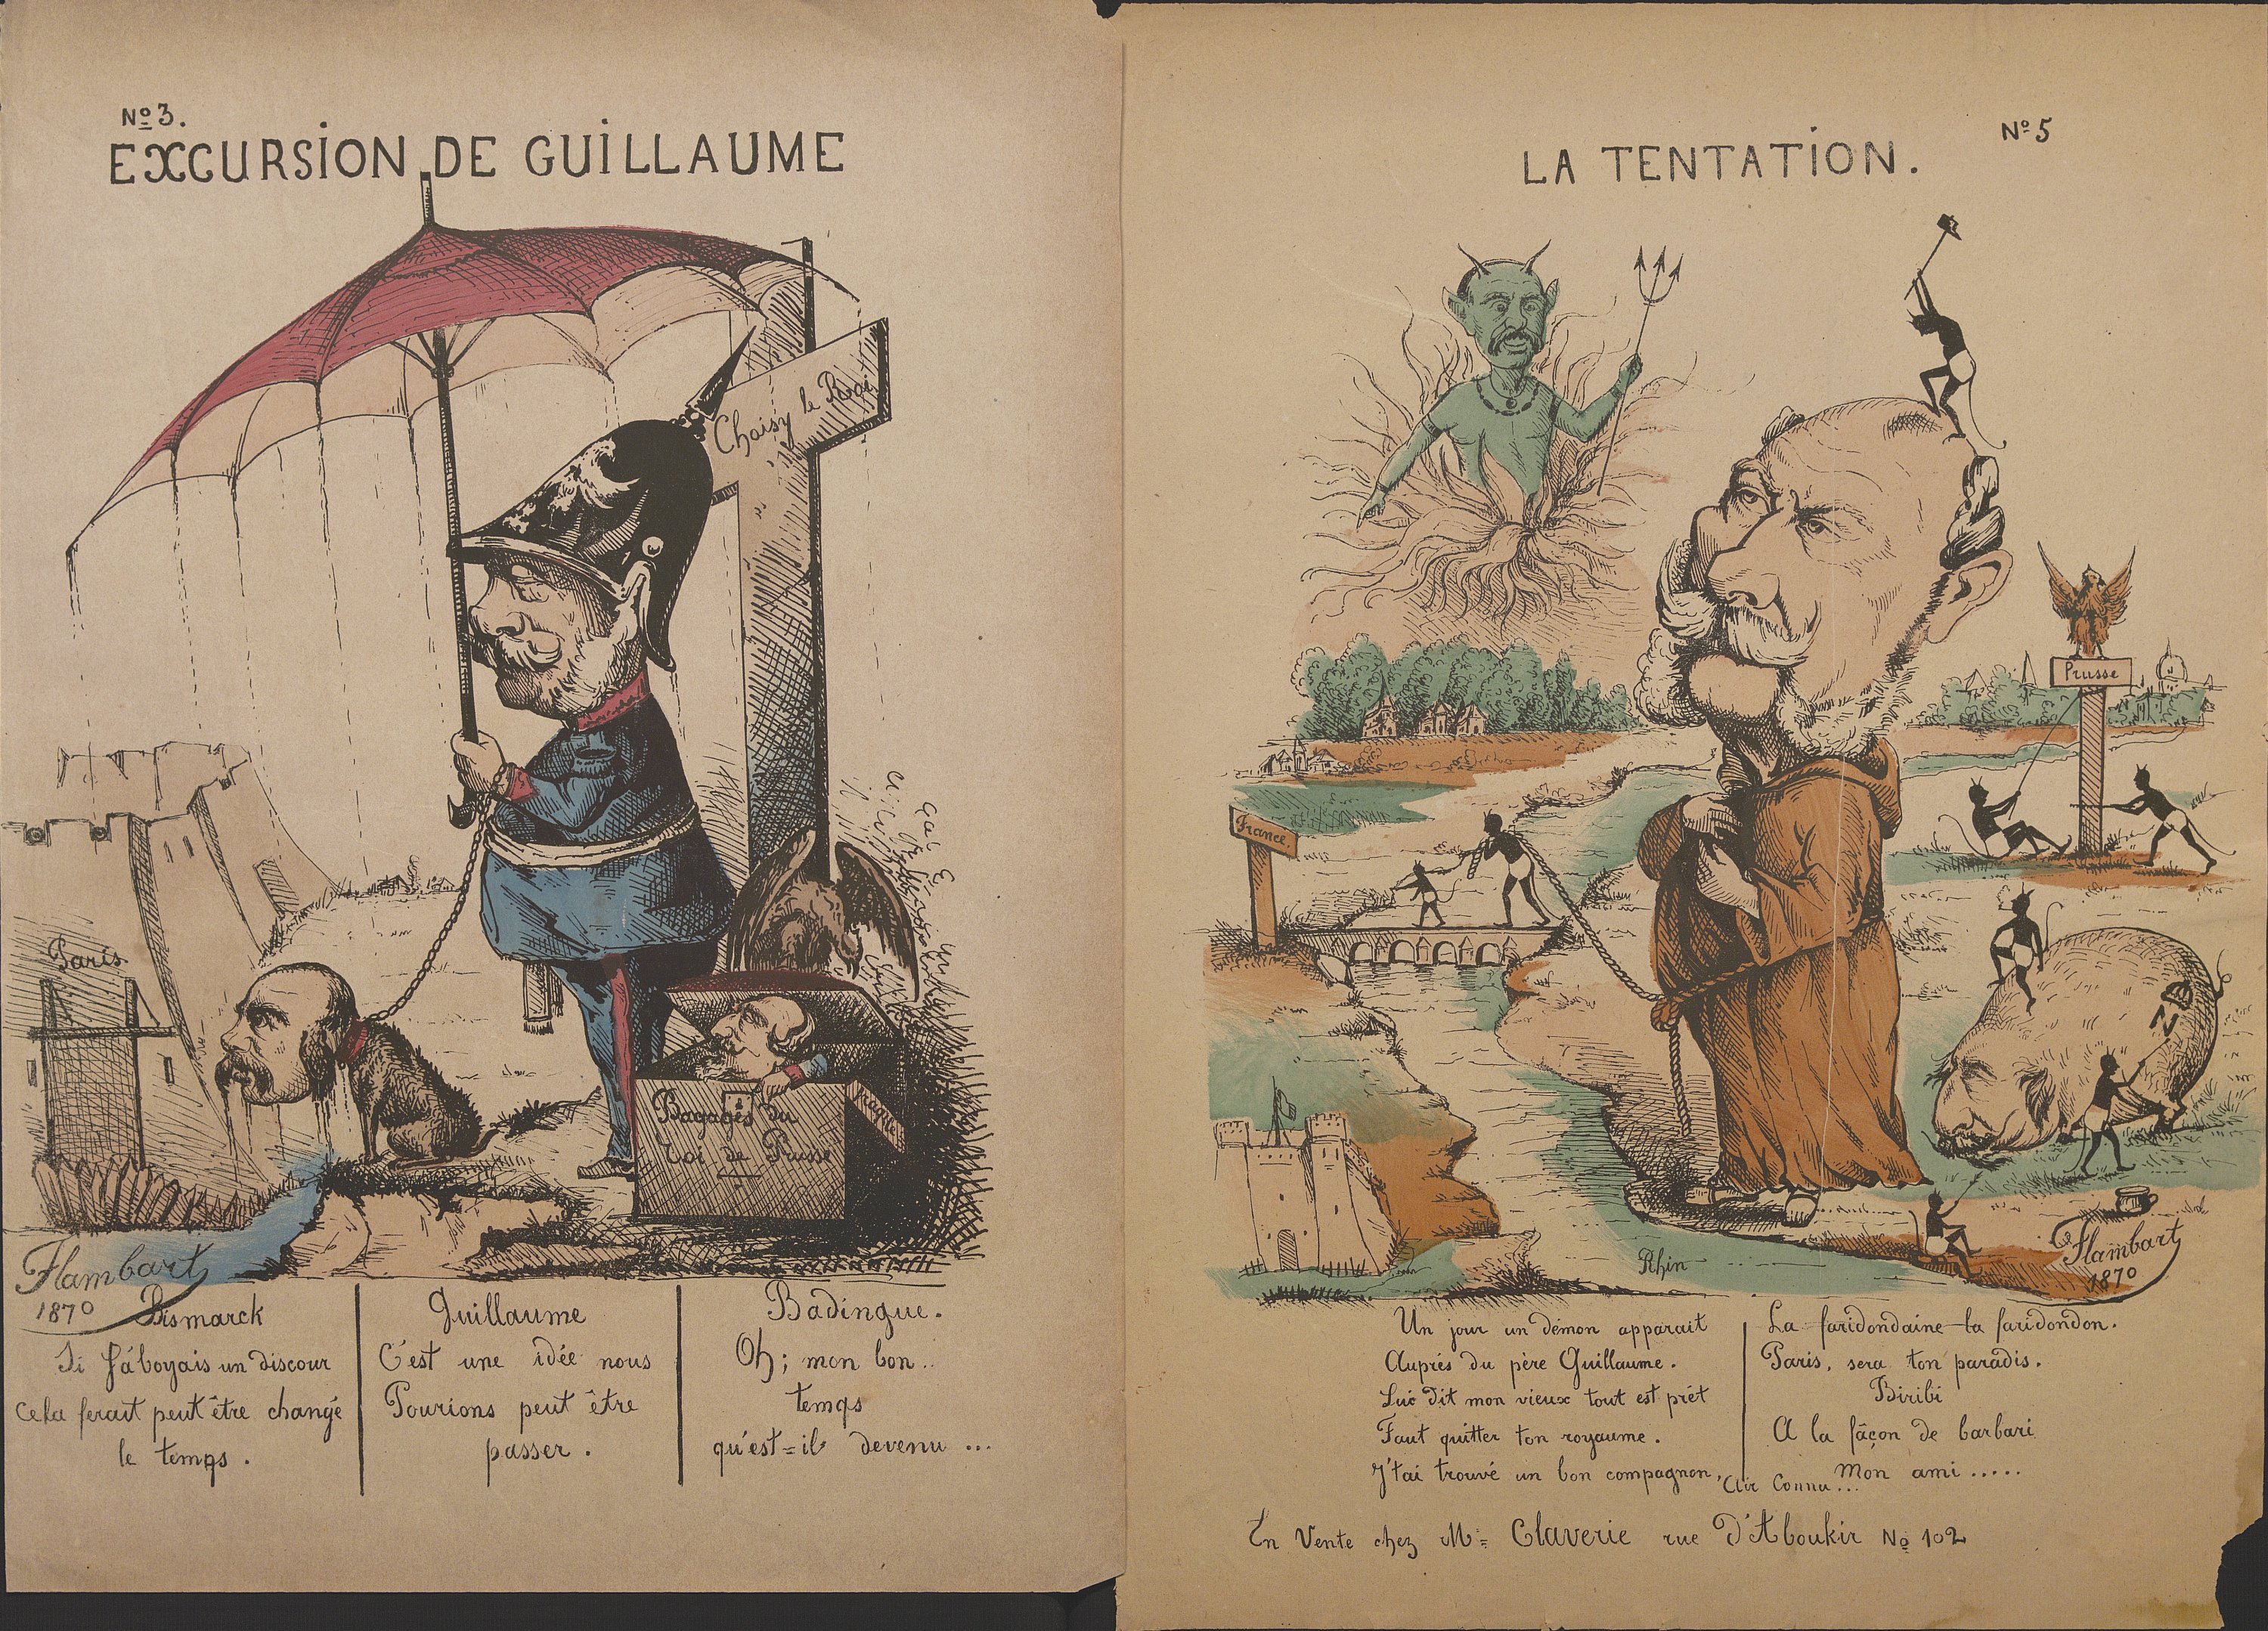 No 3.
EXCURSION DE GUILLAUME
Choisy le Roi
Paris
Bagages du
roi de Prusse
Flambart
1870
Bismarck
Si j'aboyais un discour
cela ferait peut être changé
le temps.
Guillaume
C'est une idée nous
Pourions peut être
passer.
Badingue.
Oh; mon bon..
temps
qu'est=il devenu ...
No 5
LA TENTATION.
Prusse
France
N
Rhin
Flambart
1870
Un jour un démon apparait
Auprés du père Guillaume.
Lui dit mon vieux tout est prêt
Faut quitter ton royaume.
J't'ai trouvé un bon compagnon,
La faridondaine la faridondon.
Paris, sera ton paradis.
Biribi
A la façon de barbari
Mon ami.....
Air Connu...
En Vente chez Mr Claverie rue D'Aboukir No 102